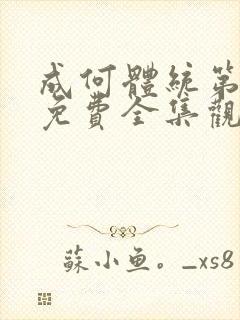 成何體統第
免費全集觀
蘇小魚。_xs8